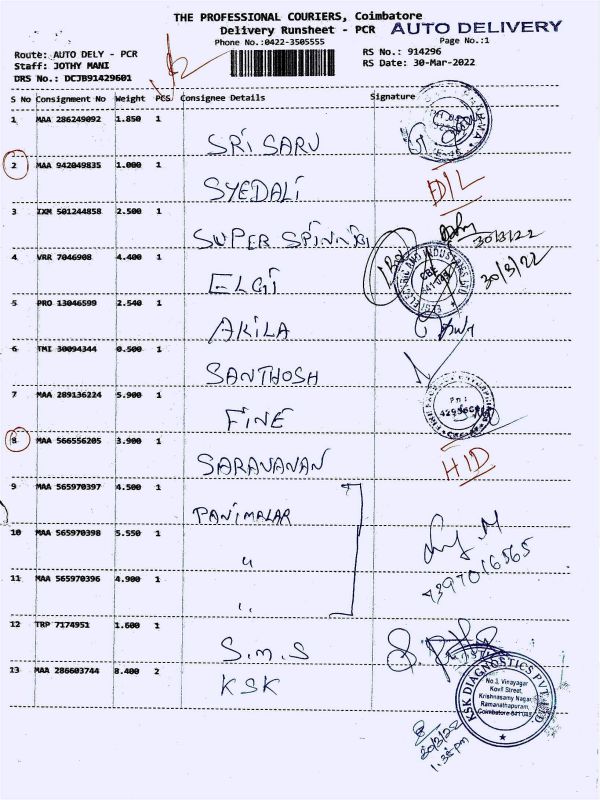 THE PROFESSIONAL COURIERS, Coimbatore
Delivery Runsheet - PCR AUTO DELIVERY
Phone No.:0422-3505555 Page No.:1
Route: AUTO DELY - PCR RS No.: 914296
Staff: JOTHY MANI RS Date: 30-Mar-2022
DRS No.: DCJB91429601
S No Consignment No Weight PCS Consignee Details Signature
1 MAA 286249092 1.850 1 SRI SARU
2 MAA 942049835 1.000 1 SYEDALI
3 IXM 501244858 2.500 1 SUPER 30/3/22
4 VRR 7046908 4.400 1 ELGI 30/3/22
5 PRO 13046599 2.540 1 AKILA
6 TMI 30094344 0.500 1 SANTHOSH
7 MAA 289136224 5.900 1 FINE
8 MAA 566556205 3.900 1 SARAVANAN HID
9 MAA 565970397 4.500 1 PANIMALAR
10 MAA 565970398 5.550 1 "
11 MAA 565970396 4.900 1 "
12 TRP 7174951 1.600 1 S.M.S
13 MAA 286603744 8.400 2 KSK
KSK DIAGNOSTICS PVT. LTD.
No.3, Vinayagar
Kovil Street,
Krishnasamy Nagar,
Ramanathapuram,
Coimbatore
30/3/22
1.35 pm